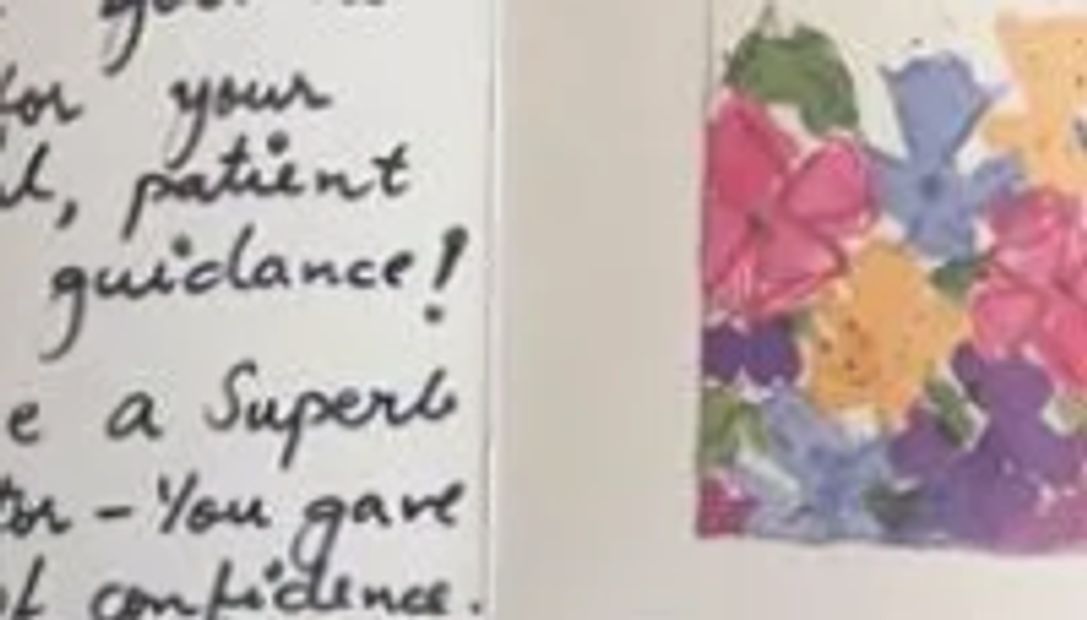 for your
patient
guidance!
e a Superb
tor - You gave
confidence.